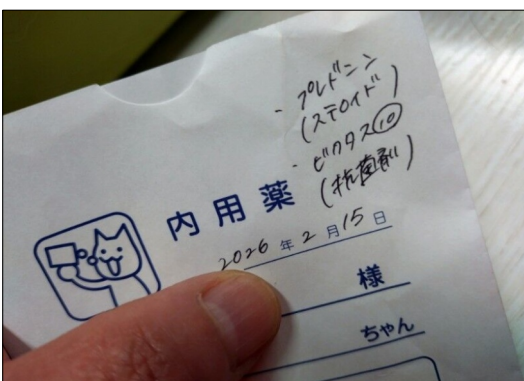 ・プレドニン
(ステロイド)
・ビクタス⑩
(抗菌剤)
内用薬
2026年2月15日
様
ちゃん